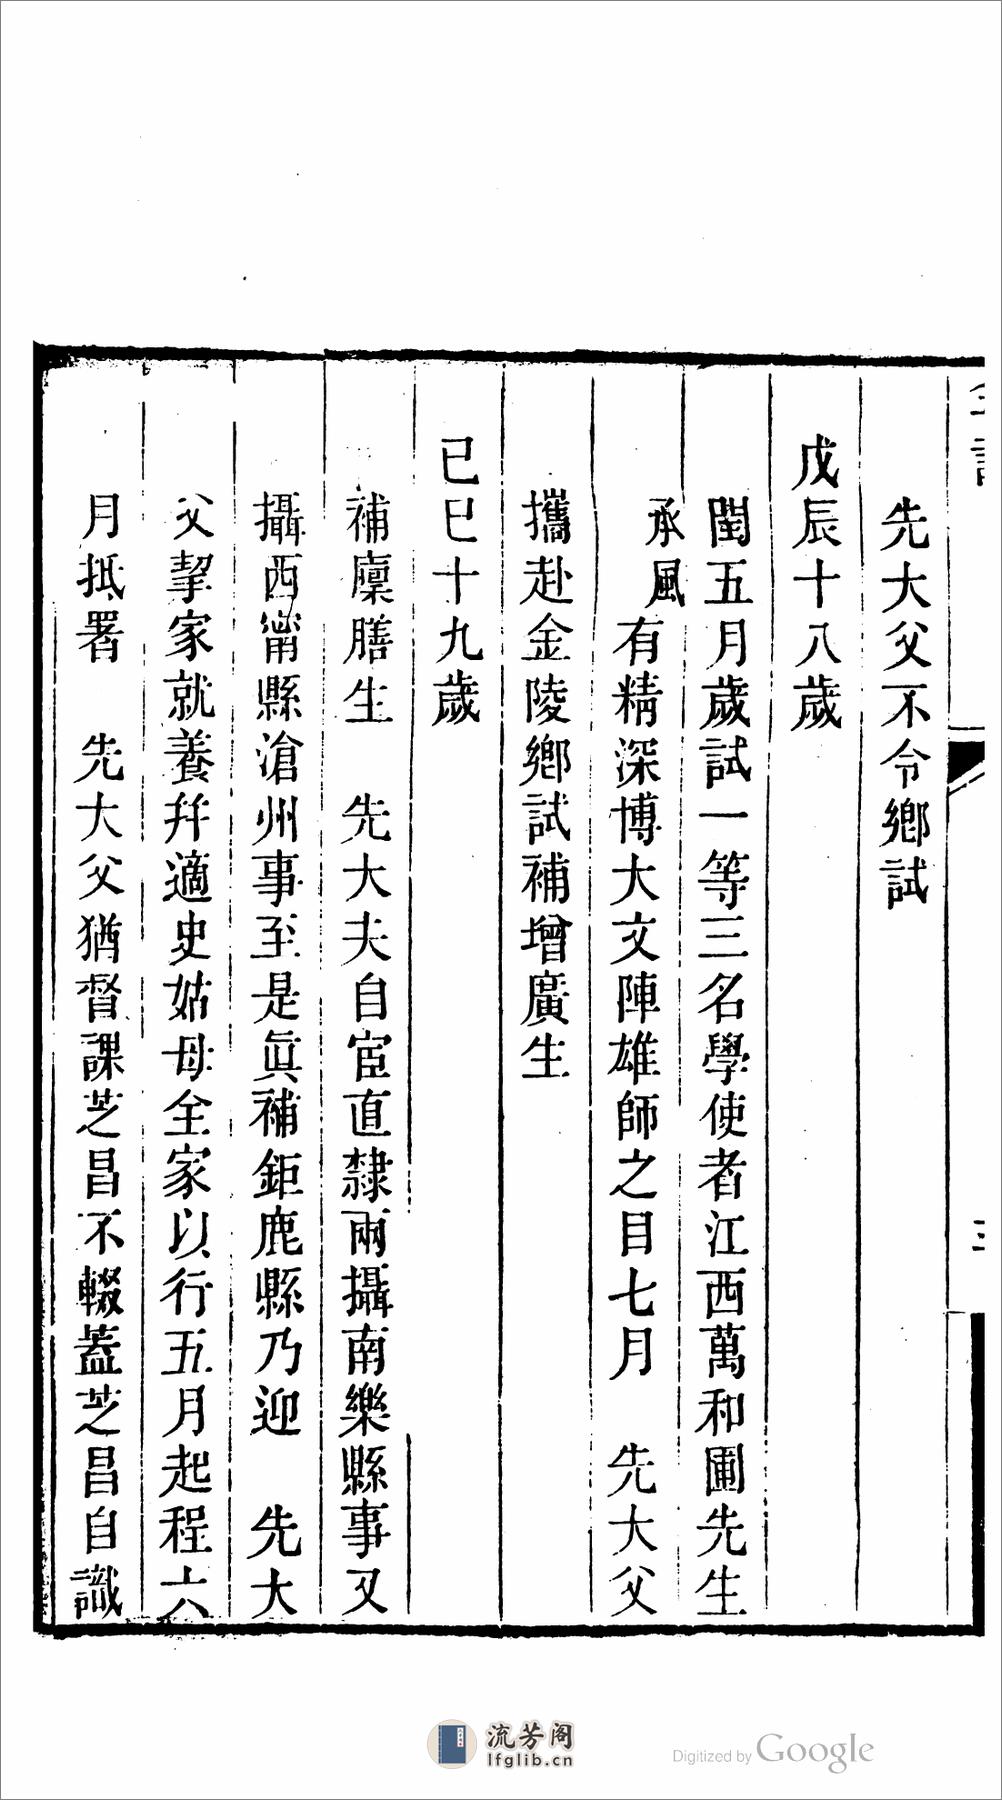 先大父不令鄉試
戊辰十八歲
閏五月歲試一等三名學使者江西萬和圃先生
承風有精深博大文陣雄師之目七月　先大父
攜赴金陵鄉試補增廣生
己巳十九歲
補廩膳生　先大夫自宦直隸兩攝南樂縣事又
攝西甯縣滄州事至是眞補鉅鹿縣乃迎　先大
父挈家就養幷適史姑母全家以行五月起程六
月抵署　先大父猶督課芝昌不輟蓋芝昌自識
流芳阁
lfglib.cn
Digitized by Google